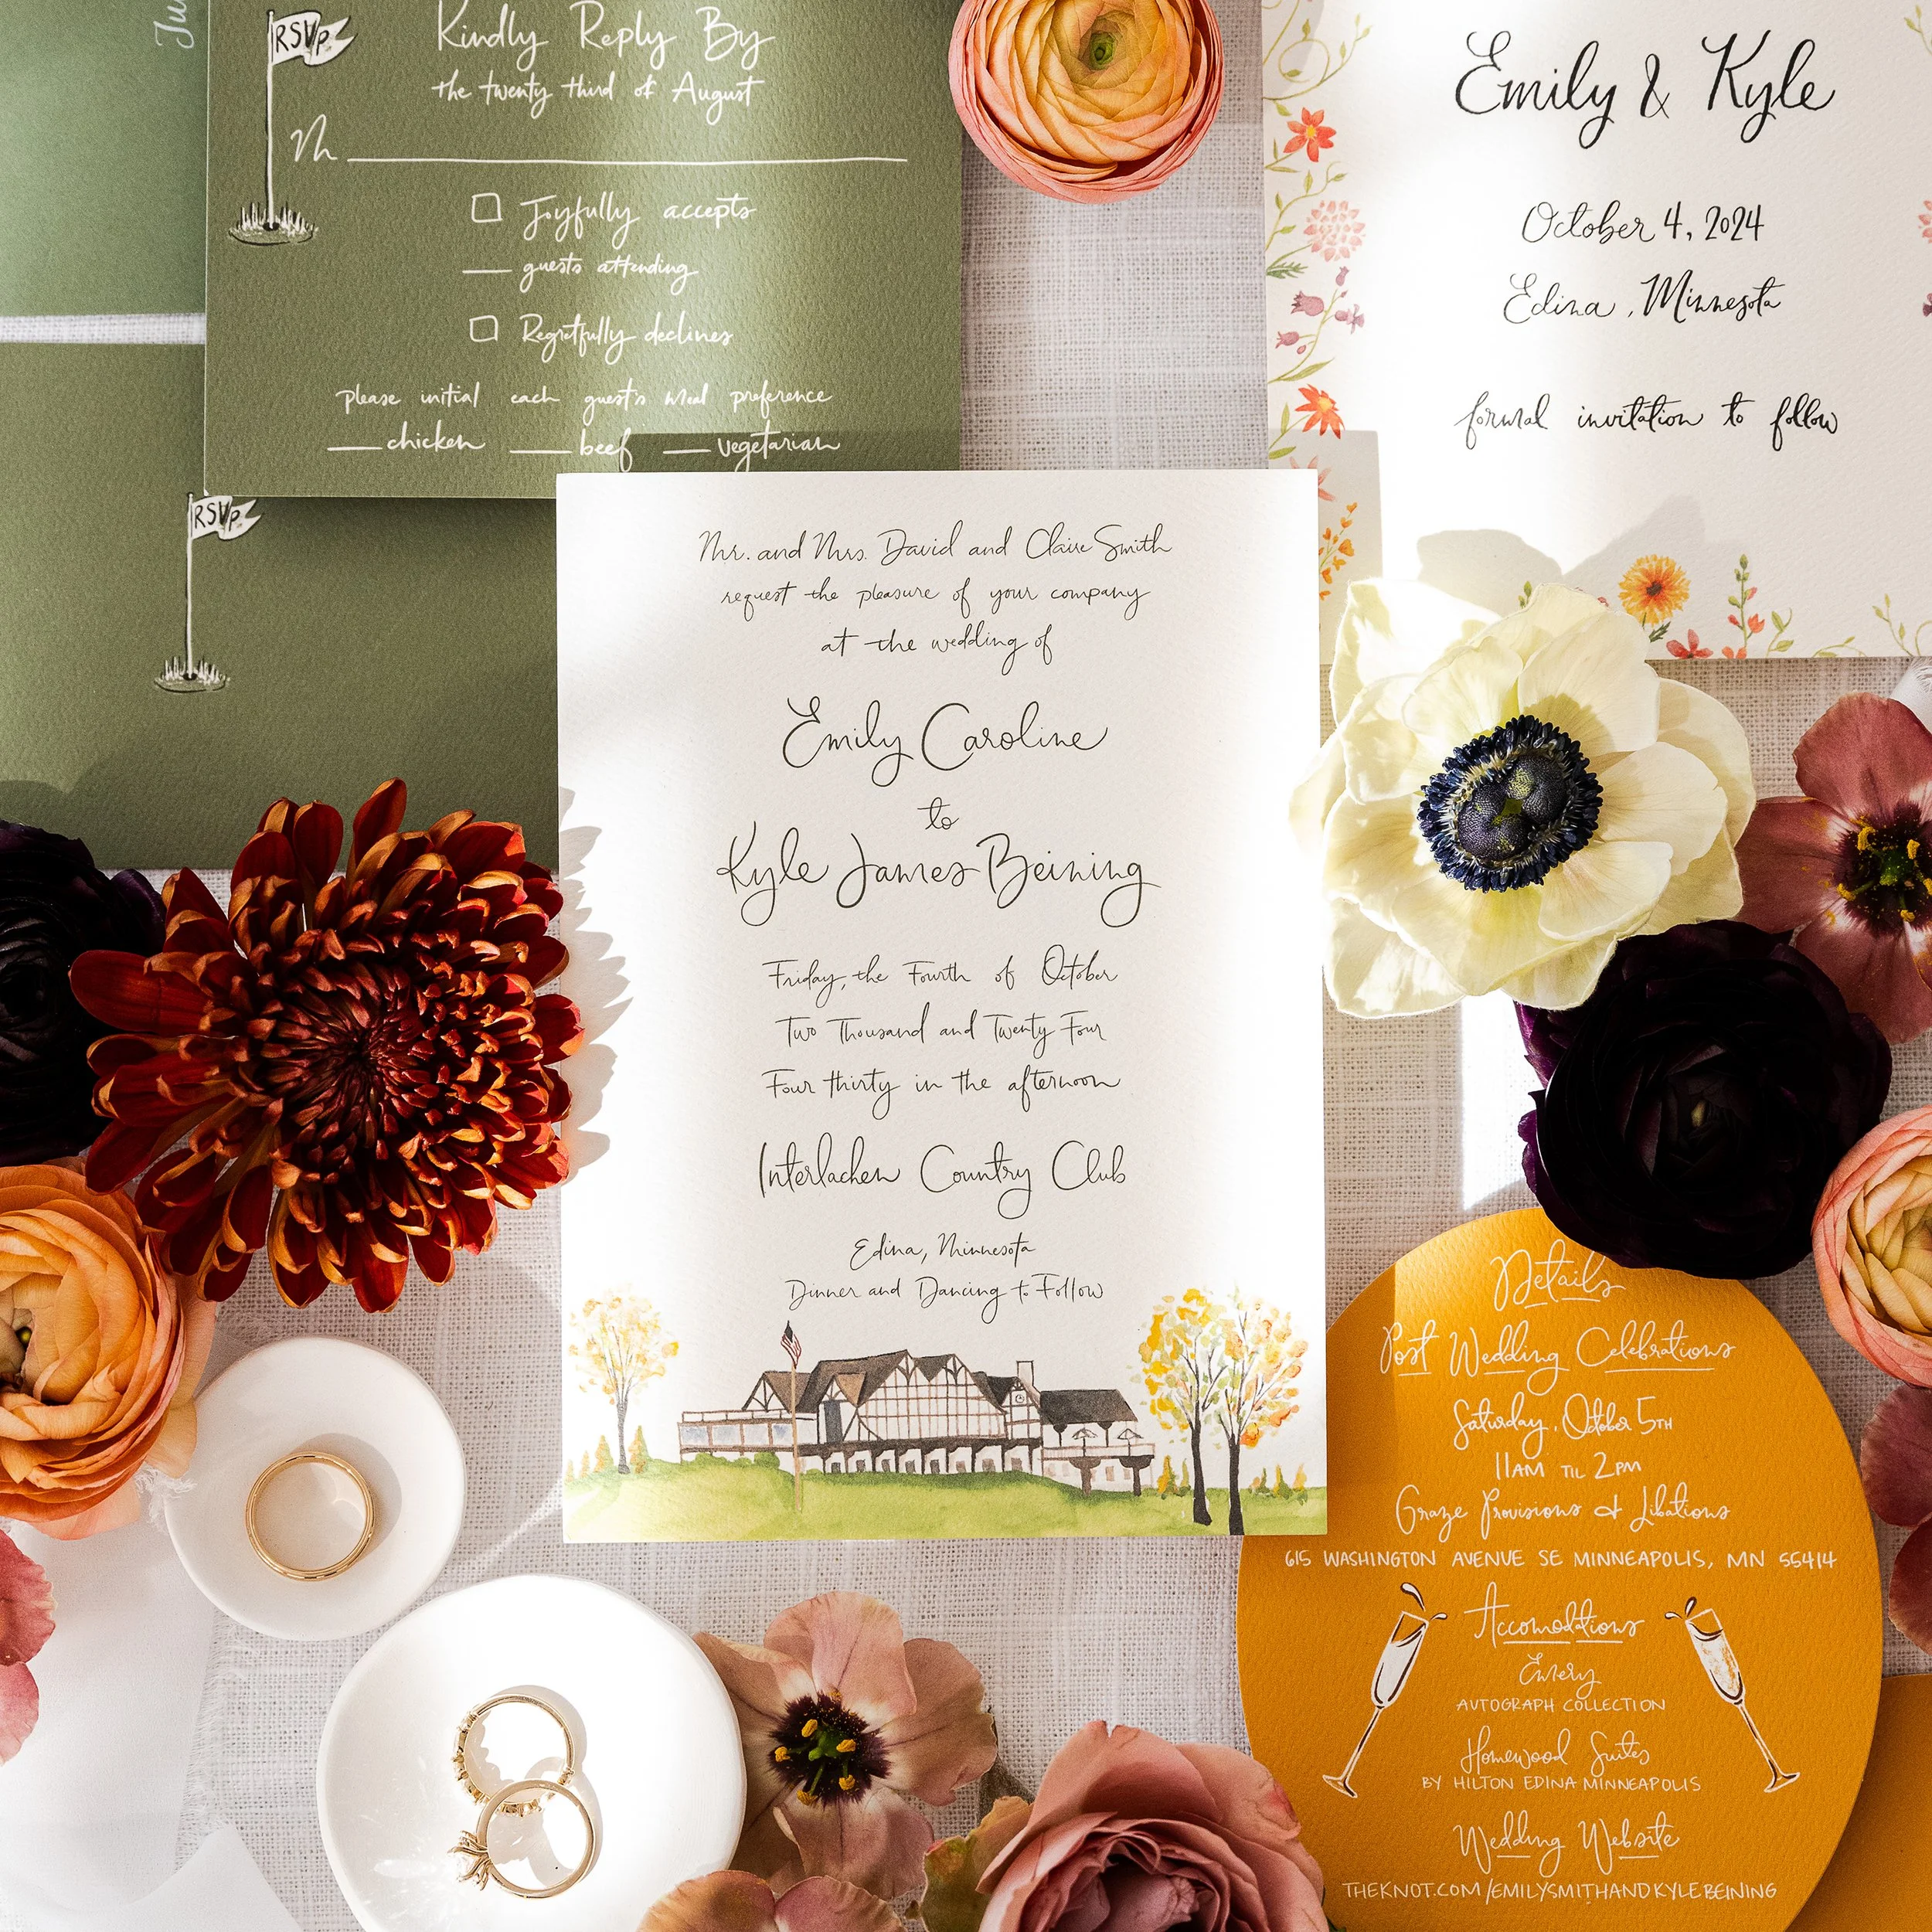 Ju
RSVP
Kindly Reply By
the twenty third of August
M
Joyfully accepts
guests attending
Regretfully declines
please initial each guest's meal preference
chicken beef vegetarian
RSVP
Emily & Kyle
October 4, 2024
Edina, Minnesota
formal invitation to follow
Mr. and Mrs. David and Claire Smith
request the pleasure of your company
at the wedding of
Emily Caroline
to
Kyle James Beining
Friday, the Fourth of October
Two Thousand and Twenty Four
Four thirty in the afternoon
Interlachen Country Club
Edina, Minnesota
Dinner and Dancing to Follow
Details
Post Wedding Celebrations
Saturday, October 5TH
11AM TIL 2PM
Graze Provisions & Libations
615 WASHINGTON AVENUE SE MINNEAPOLIS, MN 55414
Accomodations
Emery
AUTOGRAPH COLLECTION
Homewood Suites
BY HILTON EDINA MINNEAPOLIS
Wedding Website
THEKNOT.COM/EMILYSMITHANDKYLEBEINING